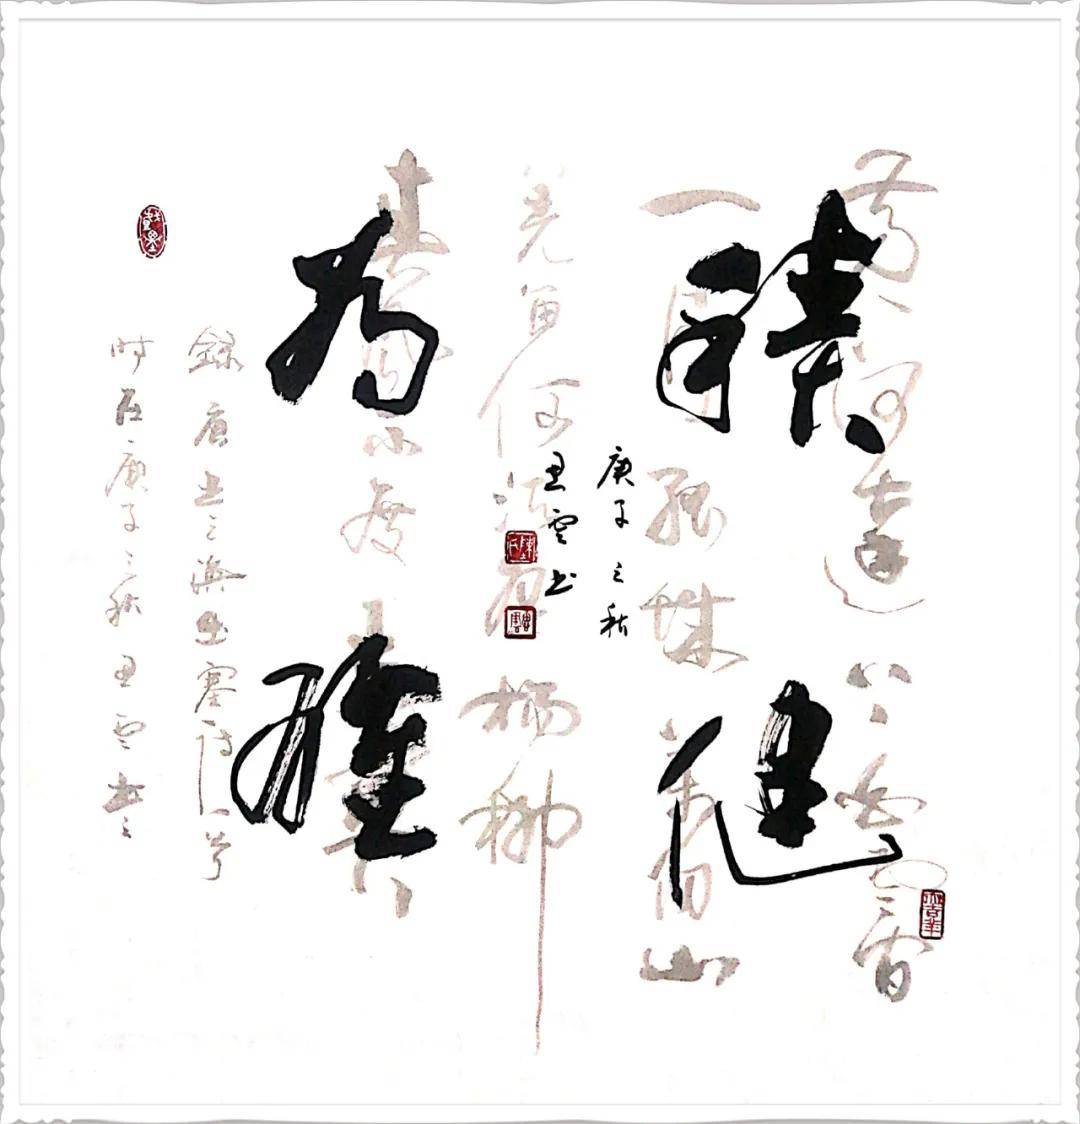 黄河遠上白雲間
一片孤城萬仞山
羌笛何須怨楊柳
春風不度玉門關
錄唐王之渙出塞詩一首
時在庚子之秋 雲書
積健
為雄
庚子之秋
雲書